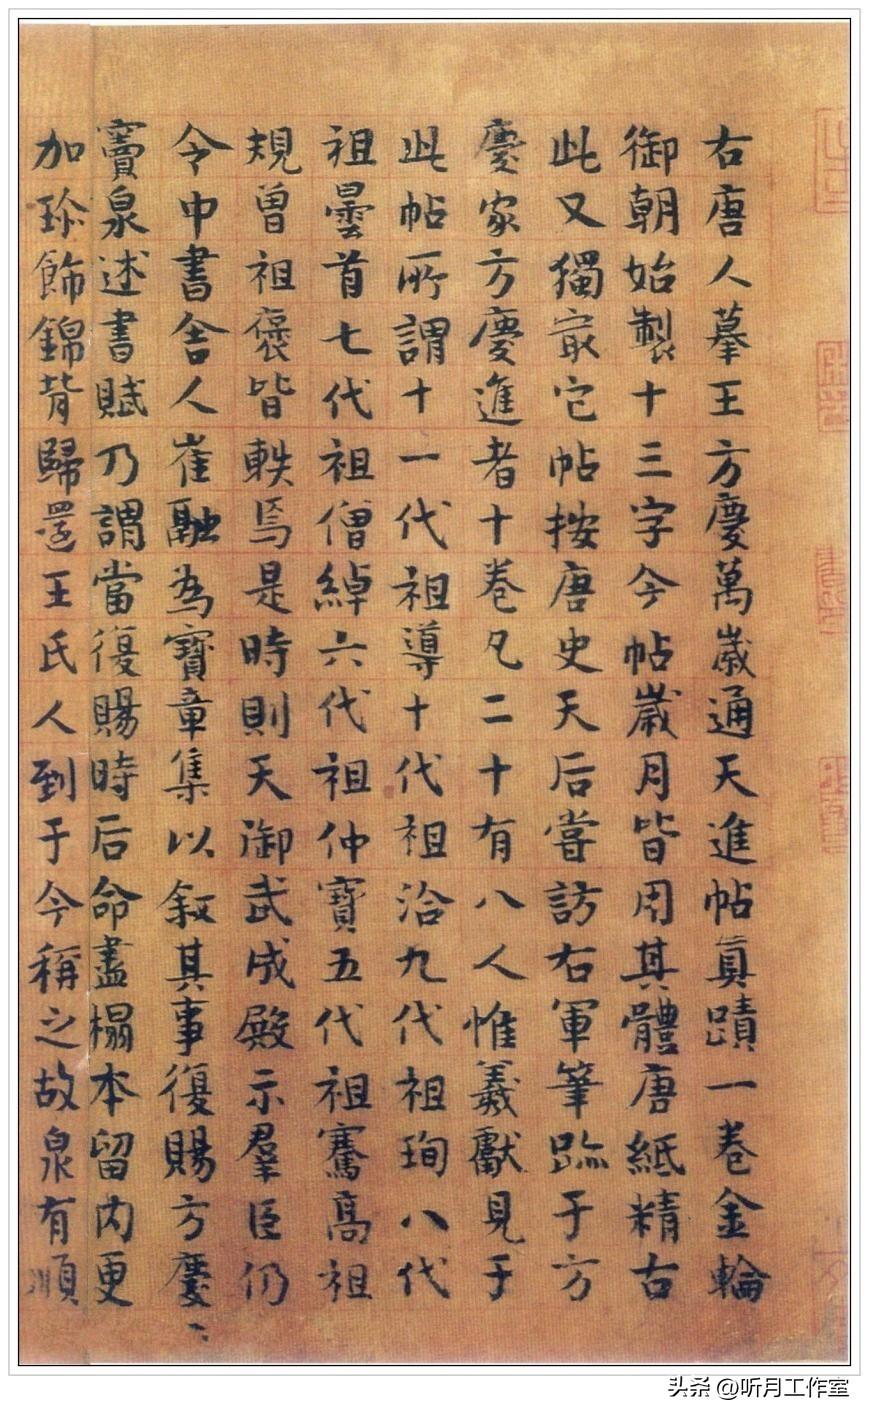 右唐人摹王方慶萬歲通天進帖真蹟一卷金輪
御朝始製十三字今帖歲月皆用其體唐紙精古
此又獨最它帖按唐史天后嘗訪右軍筆跡于方
慶家方慶進者十卷凡二十有八人惟羲獻見于
此帖所謂十一代祖導十代祖洽九代祖珣八代
祖曇首七代祖僧綽六代祖仲寶五代祖騫高祖
規曾祖褒皆軼焉是時則天御武成殿示羣臣仍
令中書舍人崔融為寶章集以敘其事復賜方慶
竇泉述書賦乃謂當復賜時后命盡榻本留內更
加珍飾錦背歸還王氏人到于今稱之故泉有順
头条 @听月工作室